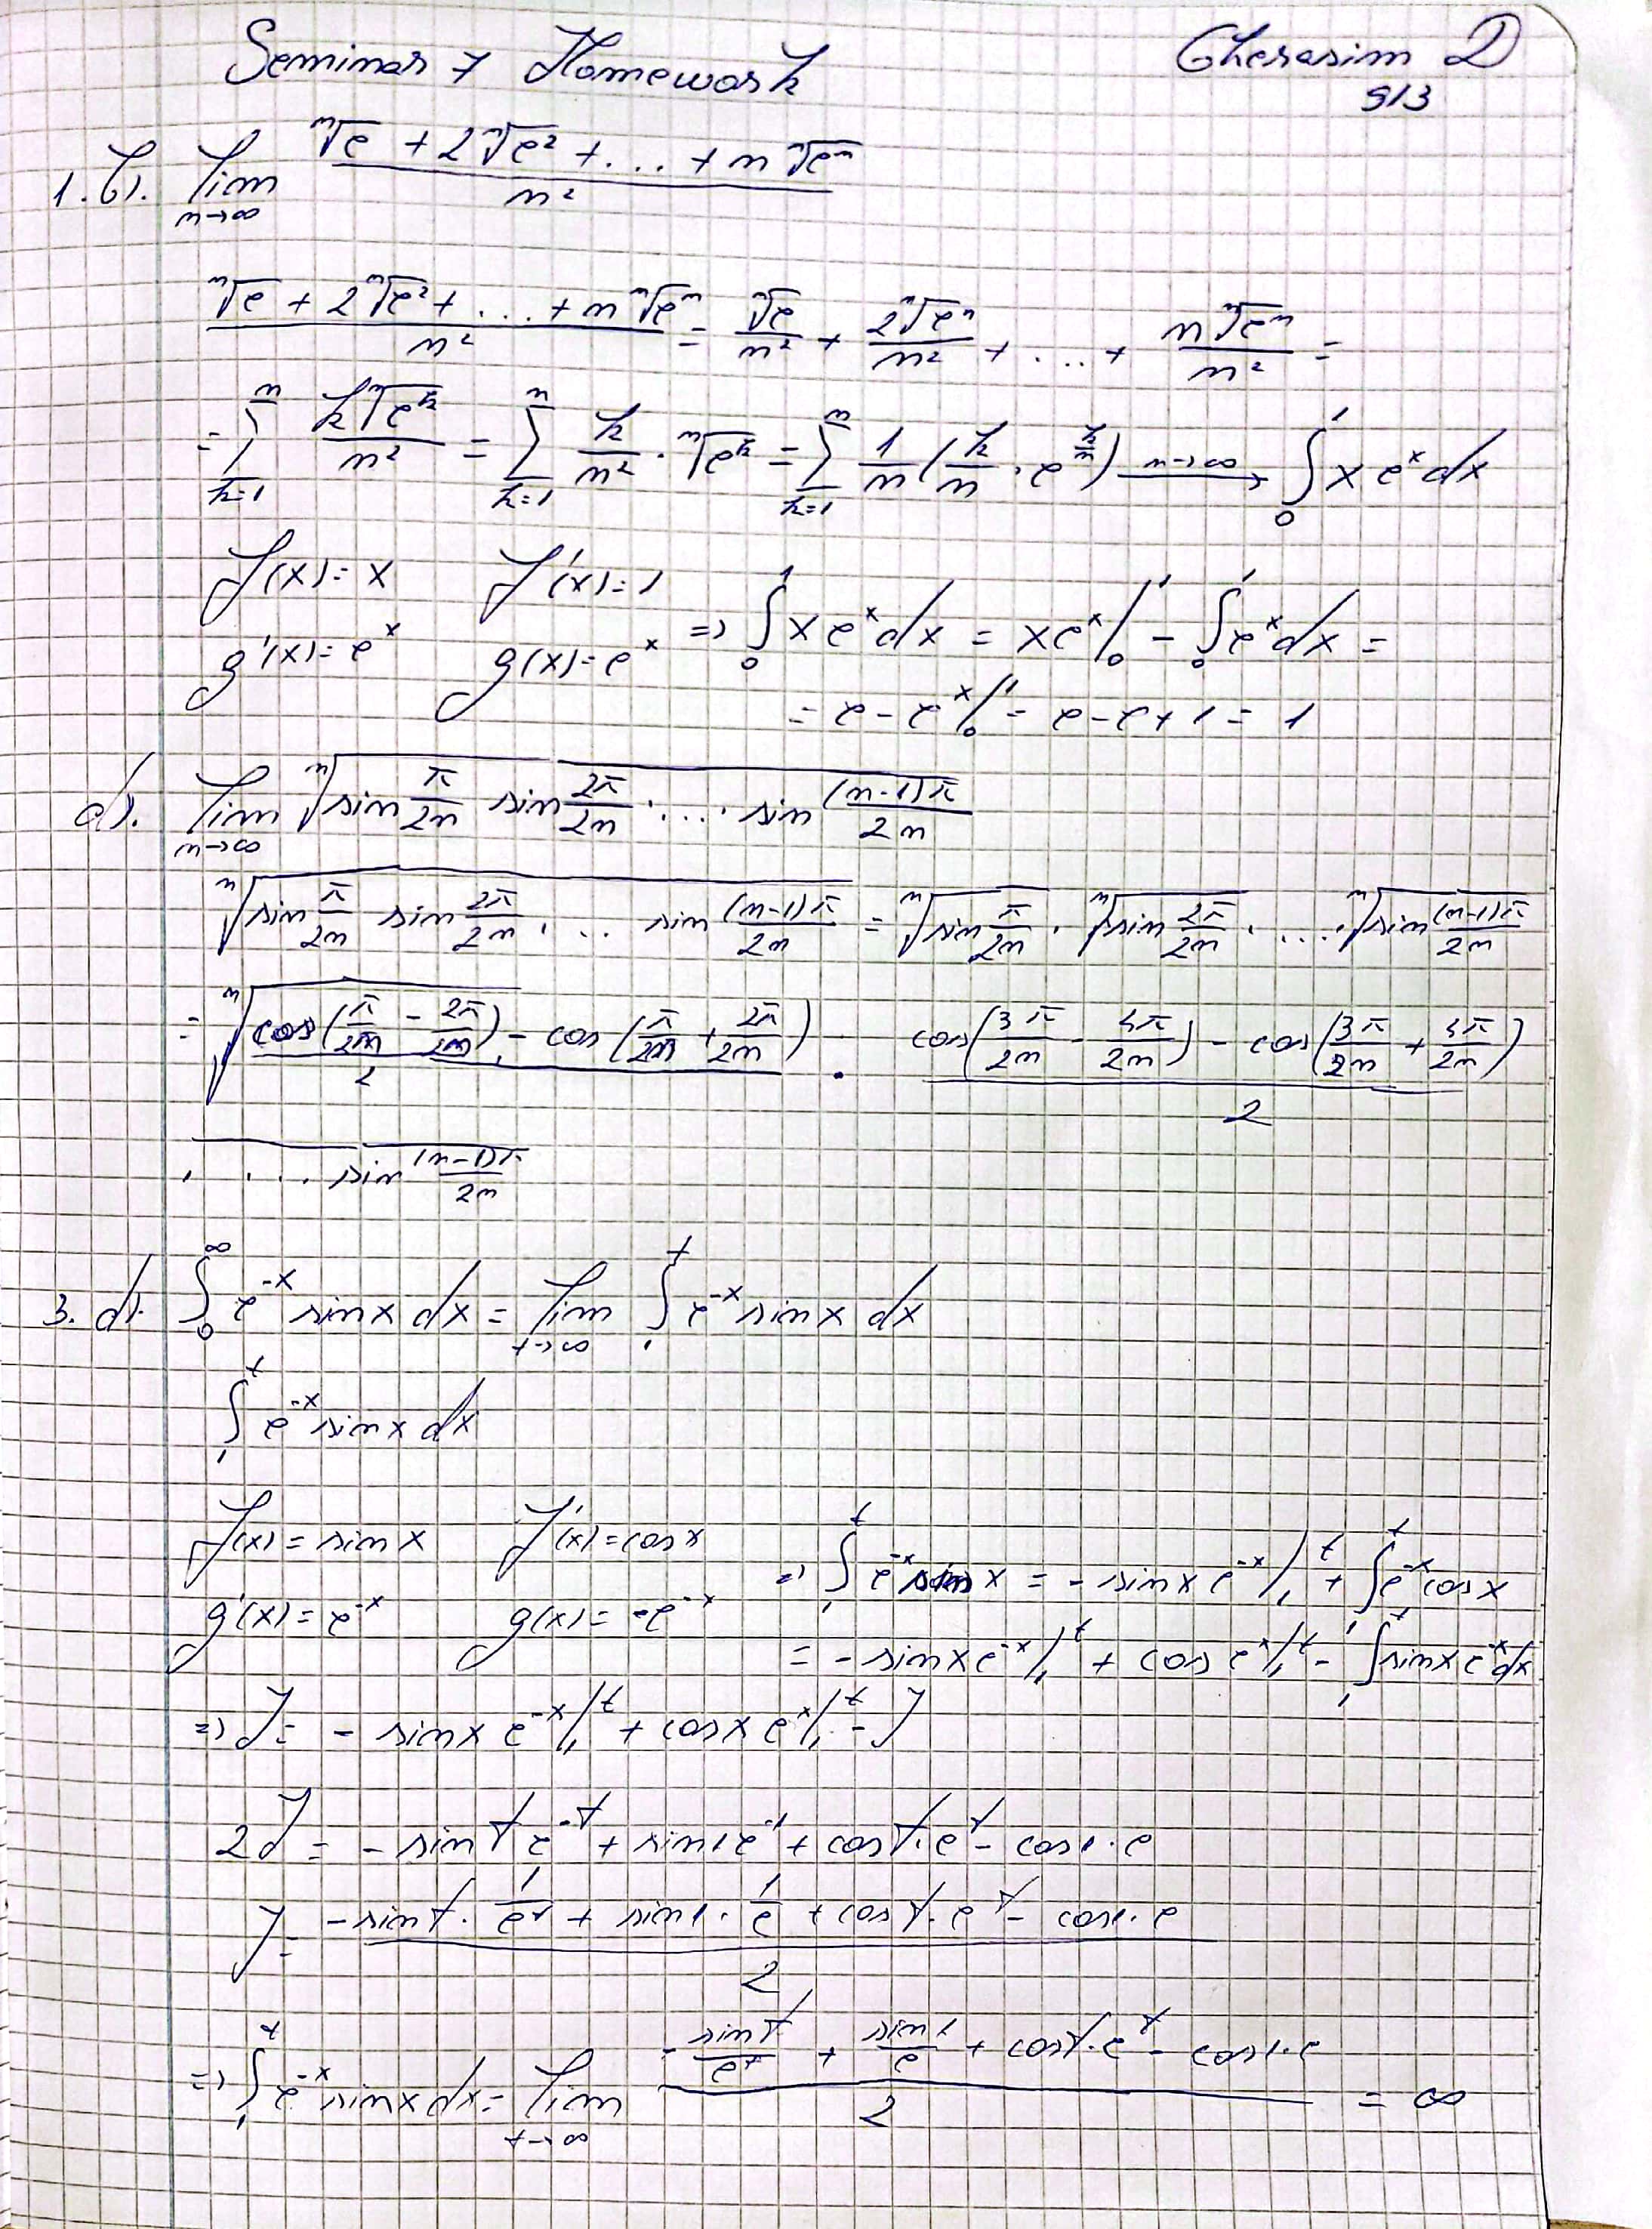 Seminar 7 Homework Gherasim D
913
1.b). lim_{n→∞} (ⁿ√e + 2 ⁿ√e² + ... + n ⁿ√eⁿ) / n²
(ⁿ√e + 2 ⁿ√e² + ... + n ⁿ√eⁿ) / n² = ⁿ√e / n² + 2 ⁿ√eⁿ / n² + ... + n ⁿ√eⁿ / n² =
= ∑_{k=1}^{n} k ⁿ√e^k / n² = ∑_{k=1}^{n} k/n² · ⁿ√e^k = ∑_{k=1}^{n} 1/n (k/n · e^{k/n}) —n→∞→ ∫_0^1 x e^x dx
f(x) = x f'(x) = 1
g'(x) = e^x g(x) = e^x => ∫_0^1 x e^x dx = x e^x |_0^1 - ∫_0^1 e^x dx =
= e - e^x |_0^1 = e - e + 1 = 1
d). lim_{n→∞} ⁿ√(sin π/2n sin 2π/2n · ... · sin (n-1)π/2n)
ⁿ√(sin π/2n sin 2π/2n · ... sin (n-1)π/2n) = ⁿ√(sin π/2n) · ⁿ√(sin 2π/2n) · ... · ⁿ√(sin (n-1)π/2n)
= ⁿ√((cos(π/2n - 2π/2n) - cos(π/2n + 2π/2n)) / 2 · (cos(3π/2n - 4π/2n) - cos(3π/2n + 4π/2n)) / 2
· ... sin (n-1)π/2n)
3. d). ∫_0^∞ e^{-x} sin x dx = lim_{t→∞} ∫_1^t e^{-x} sin x dx
∫_1^t e^{-x} sin x dx
f(x) = sin x f'(x) = cos x
g'(x) = e^{-x} g(x) = -e^{-x} => ∫_1^t e^{-x} sin x = - sin x e^{-x} |_1^t + ∫_1^t e^{-x} cos x
= - sin x e^{-x} |_1^t + cos e^x |_1^t - ∫_1^t sin x e^{-x} dx
=> J = - sin x e^{-x} |_1^t + cos x e^x |_1^t - J
2J = - sin t e^{-t} + sin 1 e^{-1} + cos t · e^t - cos 1 · e
J = (- sin t · 1/e^t + sin 1 · 1/e + cos t · e^t - cos 1 · e) / 2
=> ∫_1^t e^{-x} sin x dx = lim_{t→∞} (- sin t / e^t + sin 1 / e + cos t · e^t - cos 1 · e) / 2 = ∞